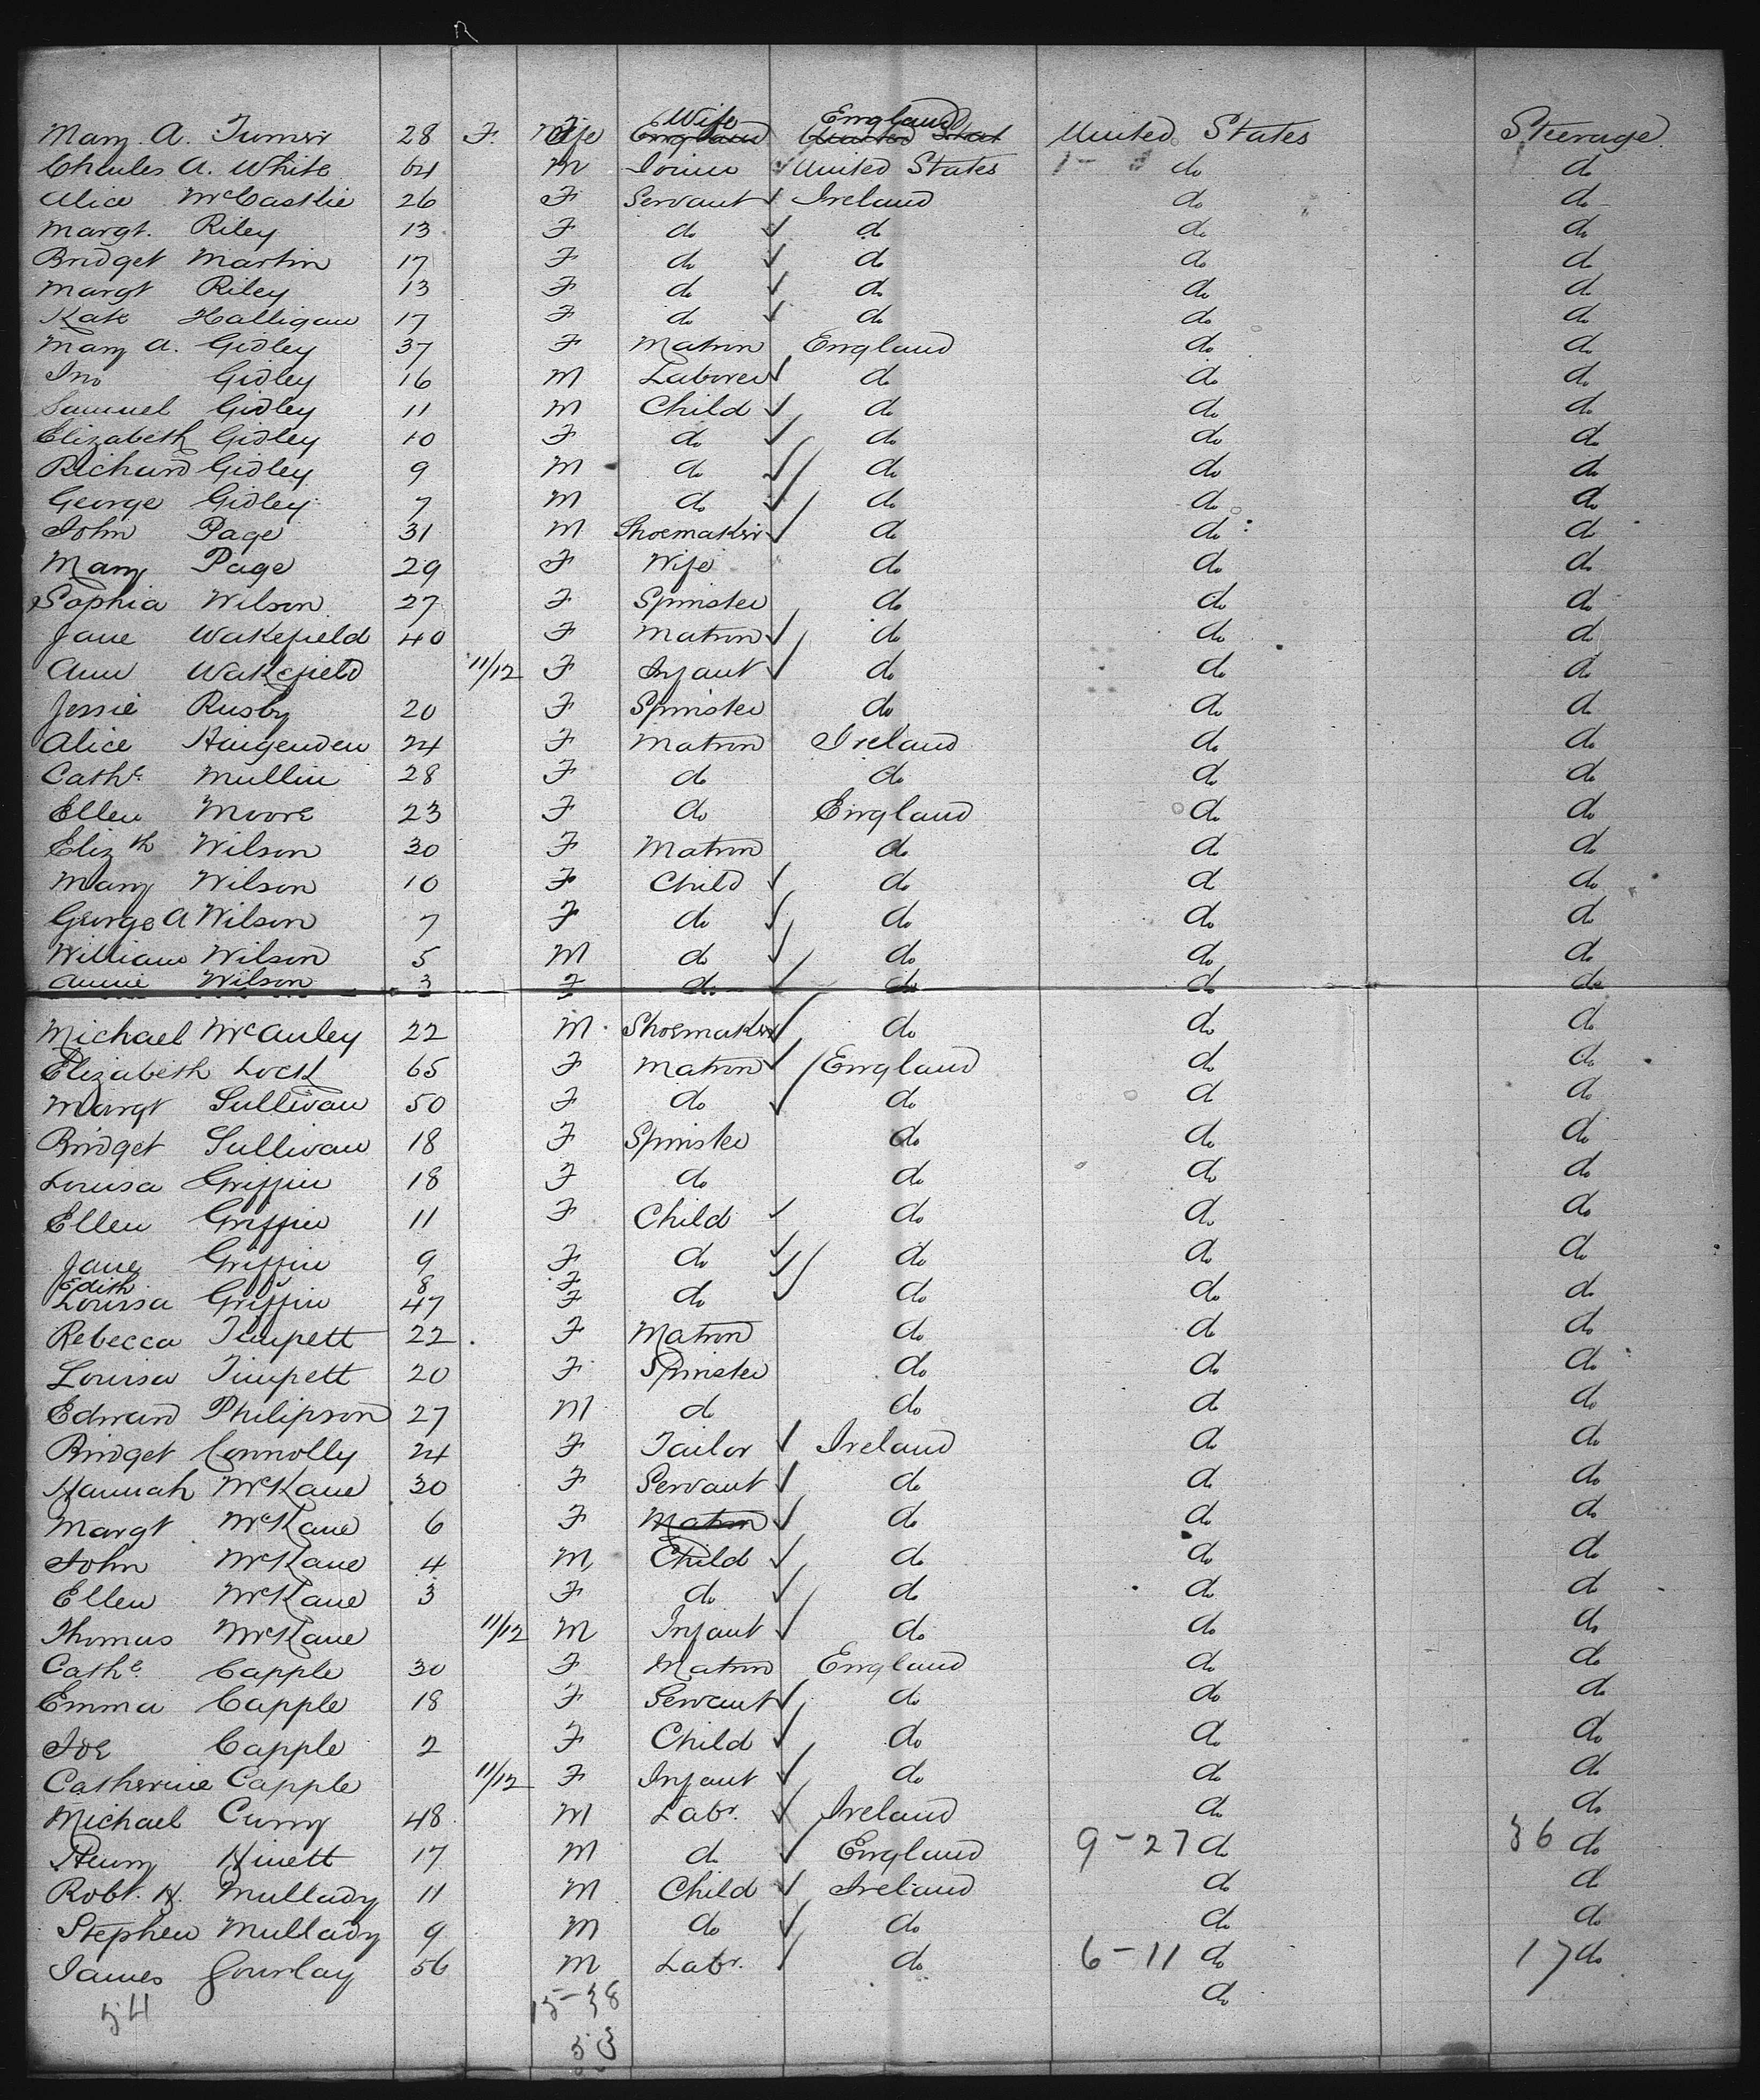 Wife England
Mary A. Turner 28 F. England United Stat United States Steerage.
Charles A. White 64 M United States do do
Alice McCaskie 26 F Servant Ireland do do
Margt. Riley 13 F do do do do
Bridget Martin 17 F do do do do
Margt Riley 13 F do do do do
Kate Halligan 17 F do do do do
Mary A. Gidley 37 F Matron England do do
Jno Gidley 16 M Laborer do do do
Samuel Gidley 11 M Child do do do
Elizabeth Gidley 10 F do do do do
Richard Gidley 9 M do do do do
George Gidley 7 M do do do do
John Page 31 M Shoemaker do do do
Mary Page 29 F Wife do do do
Sophia Wilson 27 F Spinster do do do
Jane Wakefield 40 F Matron do do do
Ann Wakefield 11/12 F Infant do do do
Jessie Rusby 20 F Spinster do do do
Alice Haigenden 24 F Matron Ireland do do
Cathe. Mullin 28 F do do do do
Ellen Moore 23 F do England do do
Elizth Wilson 30 F Matron do do do
Mary Wilson 10 F Child do do do
George A Wilson 7 F do do do do
William Wilson 5 M do do do do
Annie Wilson 3 F do do do do
Michael McAuley 22 M. Shoemaker do do do
Elizabeth Lock 65 F Matron England do do
Margt Sullivan 50 F do do do do
Bridget Sullivan 18 F Spinster do do do
Louisa Griffin 18 F do do do do
Ellen Griffin 11 F Child do do do
Jane Griffin 9 F do do do do
Edith 8 F
Louisa Griffin 47 F do do do do
Rebecca Timpett 22 F Matron do do do
Louisa Timpett 20 F Spinster do do do
Edward Philipson 27 M do do do do
Bridget Connolly 24 F Tailor Ireland do do
Hannah McKane 30 F Servant do do do
Margt McKane 6 F Matron do do do
John McKane 4 M Child do do do
Ellen McKane 3 F do do do do
Thomas McKane 11/12 M Infant do do do
Cathe. Capple 30 F Matron England do do
Emma Capple 18 F Servant do do do
Joe Capple 2 F Child do do do
Catherine Capple 11/12 F Infant do do do
Michael Curry 48 M Labr. Ireland do do
Henry Hinett 17 M do England 9-27 do 36 do
Robt. H. Mullady 11 M Child Ireland do do
Stephen Mullady 9 M do do do do
James Gourlay 56 M Labr. do 6-11 do 17 do
54 15-38 do
53